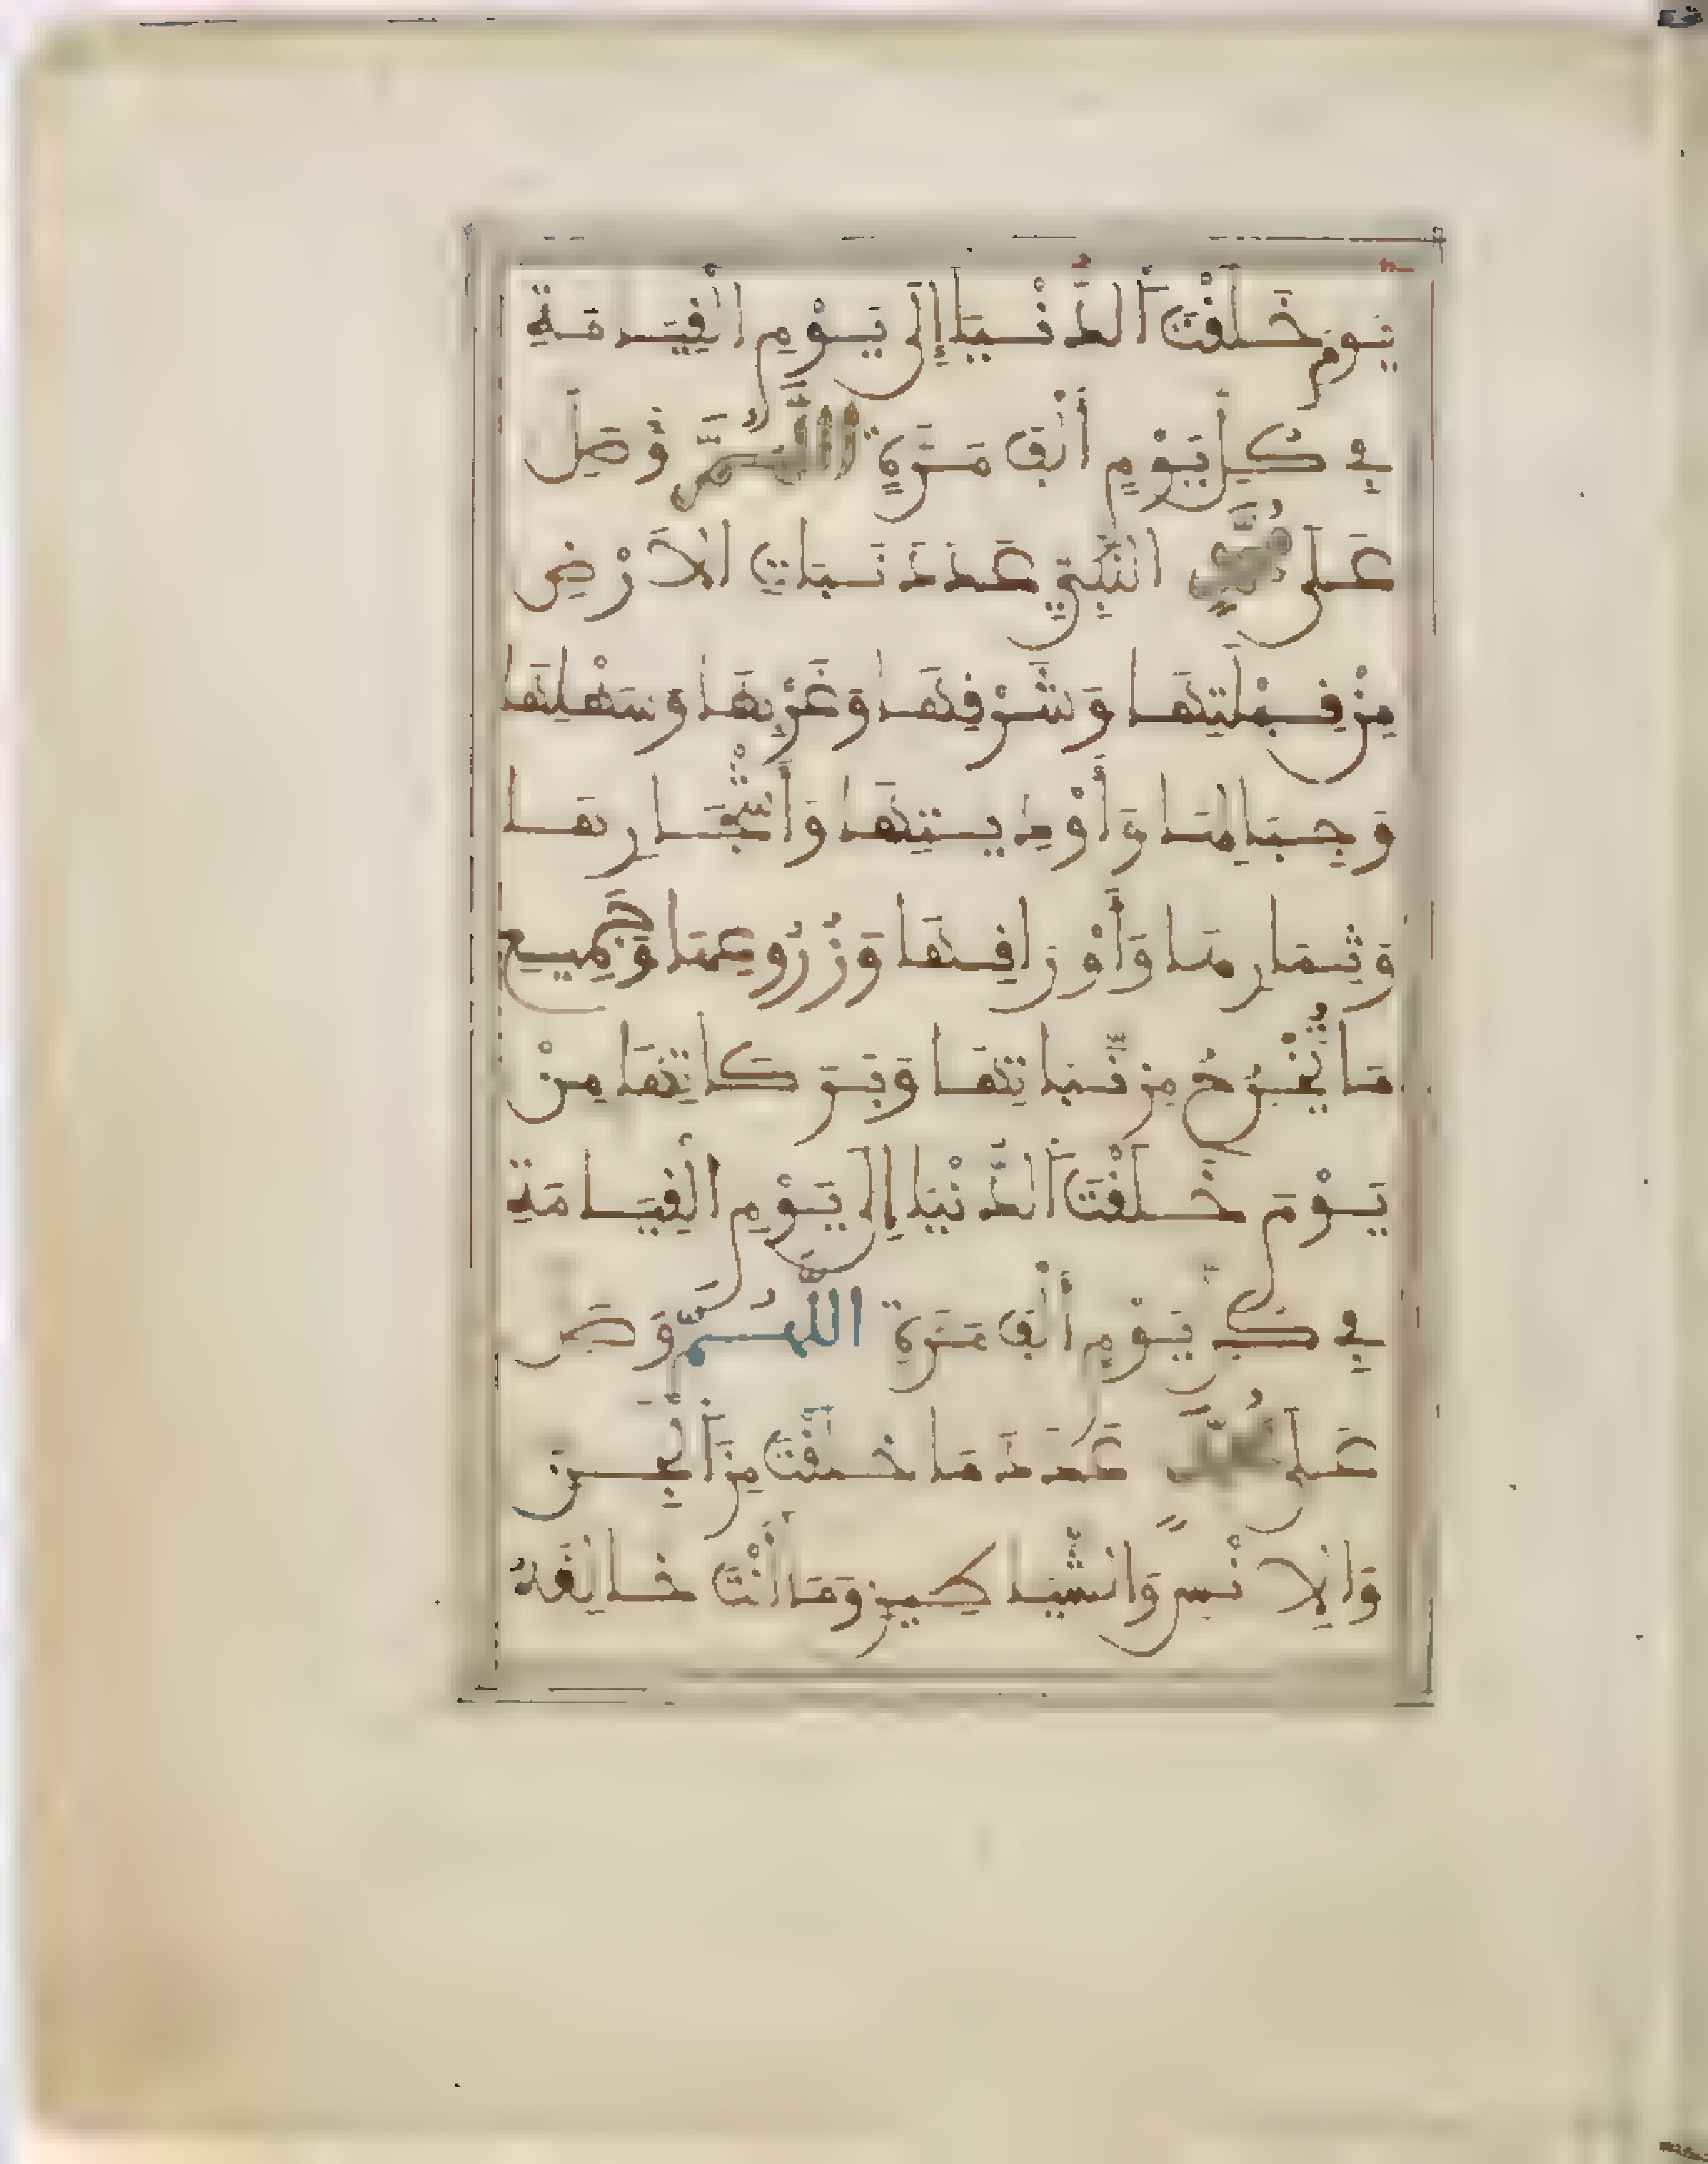 يَوم خَلَقْتَ ٱلدُّنْيَا إِلَى يَوْمِ ٱلْقِيَـمَةِ
فِي كُلِّ يَوْمٍ أَلْفَ مَرَّةٍ اللَّهُمَّ وَصَلِّ
عَلَى مُحَمَّدٍ النَّبِيِّ عَدَدَ نَبَاتِ الَارْضِ
مِنْ قِبْلَتِهَا وَشَرْقِهَا وَغَرْبِهَا وَسَهْلِهَا
وَجِبَالِهَا وَأَوْدِيَتِهَا وَأَشْجَارِهَا
وَثِمَارِهَا وَأَوْرَاقِهَا وَزُرُوعِهَا وَجَمِيعِ
مَا يَخْرُجُ مِن نَّبَاتِهَا وَبَرَكَاتِهَا مِنْ
يَوْمَ خَلَقْتَ ٱلدُّنْيَا إِلَى يَوْمِ الْقِيَامَةِ
فِي كُلِّ يَوْمٍ أَلْفَ مَرَّةٍ اللَّهُمَّ وَصَلِّ
عَلَى مُحَمَّدٍ عَدَدَ مَا خَلَقْتَ مِنَ ٱلْجِنِّ
وَالِانْسِ وَالشَّيَاطِينِ وَمَا أَنْتَ خَالِقُهُ